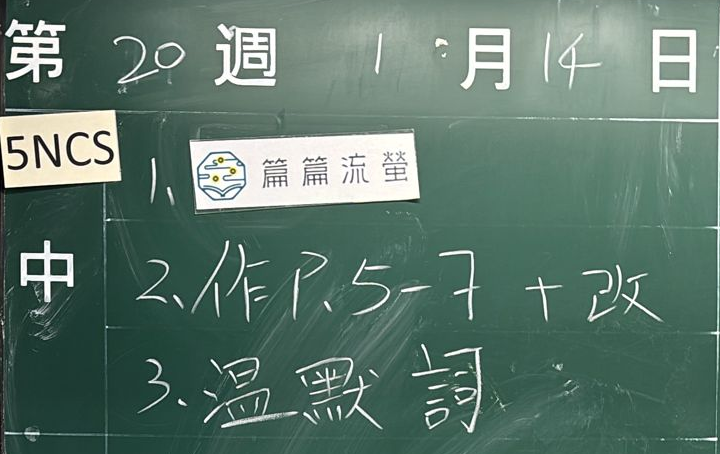 第 20 週 1 月 14 日
5NCS
1. 篇篇流螢
中
2. 作 P.5-7 + 改
3. 溫默詞